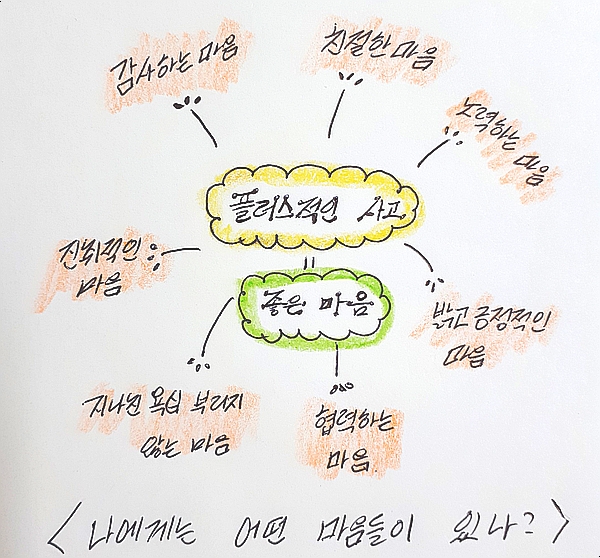 감사하는 마음
친절한 마음
노력하는 마음
플러스적인 사고
진취적인
마음
좋은 마음
밝고 긍정적인
마음
지나친 욕심 부리지
않는 마음
협력하는
마음
< 나에게는 어떤 마음들이 있나? >